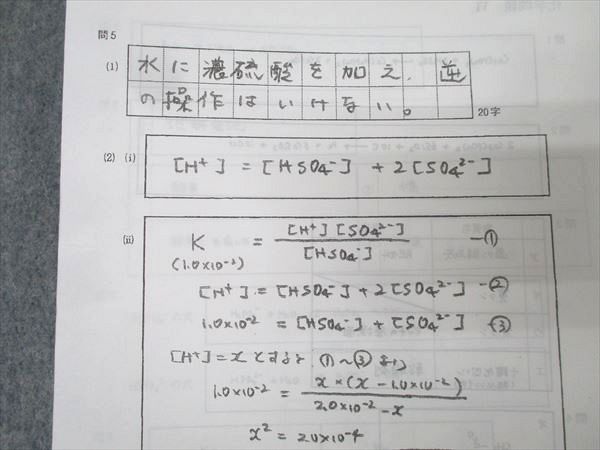 問5
(1) 水に濃硫酸を加え、逆
の操作はいけない。
20字
(2) (i) [H⁺] = [HSO₄⁻] + 2[SO₄²⁻]
(ii) K = [H⁺][SO₄²⁻] / [HSO₄⁻] —①
(1.0×10⁻²)
[H⁺] = [HSO₄⁻] + 2[SO₄²⁻] —②
1.0×10⁻² = [HSO₄⁻] + [SO₄²⁻] —③
[H⁺] = x とすると、①〜③より
1.0×10⁻² = x×(x − 1.0×10⁻²) / 2.0×10⁻² − x
x² = 2.0×10⁻⁴